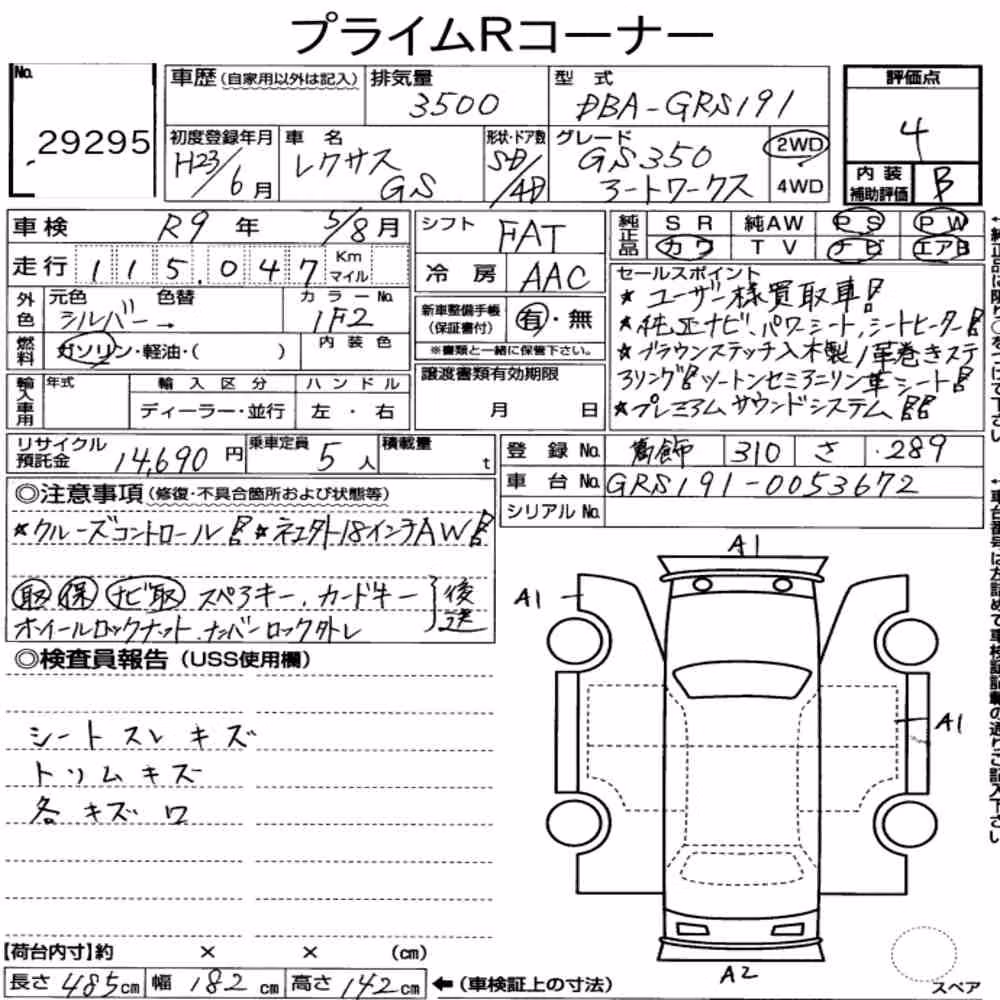 プライムRコーナー
No. 29295
車歴 (自家用以外は記入)
排気量 3500
型式 DBA-GRS191
評価点 4
内装補助評価 B
初度登録年月 H23/6月
車名 レクサス GS
形状・ドア数 SD/4D
グレード GS350 アートワークス
2WD
4WD
車検 R9年 5/8月
走行 115,047 Km マイル
シフト FAT
冷房 AAC
純正品 SR 純AW PS PW
カワ TV ナビ エアB
外色 元色 シルバー→ 色替 カラーNo. 1F2
燃料 ガソリン・軽油・( ) 内装色
新車整備手帳(保証書付) 有・無
※書類と一緒に保管下さい。
セールスポイント
★ユーザー様買取車!!
★純正ナビ、パワーシート、シートヒーター!!
★ブラウンステッチ入木製/革巻きステ
アリング!!ツートンセミアニリン革シート!!
★プレミアムサウンドシステム!!!!
輸入車用 年式 輸入区分 ハンドル
ディーラー・並行 左・右
譲渡書類有効期限
月 日
リサイクル預託金 14,690円 乗車定員 5人 積載量 t
登録No. 葛飾 310 さ ・289
車台No. GRS191-0053672
シリアルNo.
◎注意事項 (修復・不具合箇所および状態等)
★クルーズコントロール!! ★18インチAW!!
取 保 ナビ取 スペアキー、カードキー
ホイールロックナット、ナンバーロック外レ
後送
◎検査員報告 (USS使用欄)
シートスレキズ
トリムキズ
各キズワ
A1
A1
A1
A2
スペア
【荷台内寸】約 × × (cm)
長さ 485cm 幅 182cm 高さ 142cm ←(車検証上の寸法)